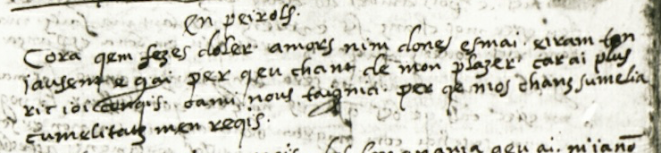 En peirols.
Cora qem fezes doler amors nim dones esmai. eiram ten
iausent e gai per qeu chant de mon plazer. car ai plus
ric ioi conqis. cami nous taignia. per qe mos chans sumelia
cumelitatz men reqis.